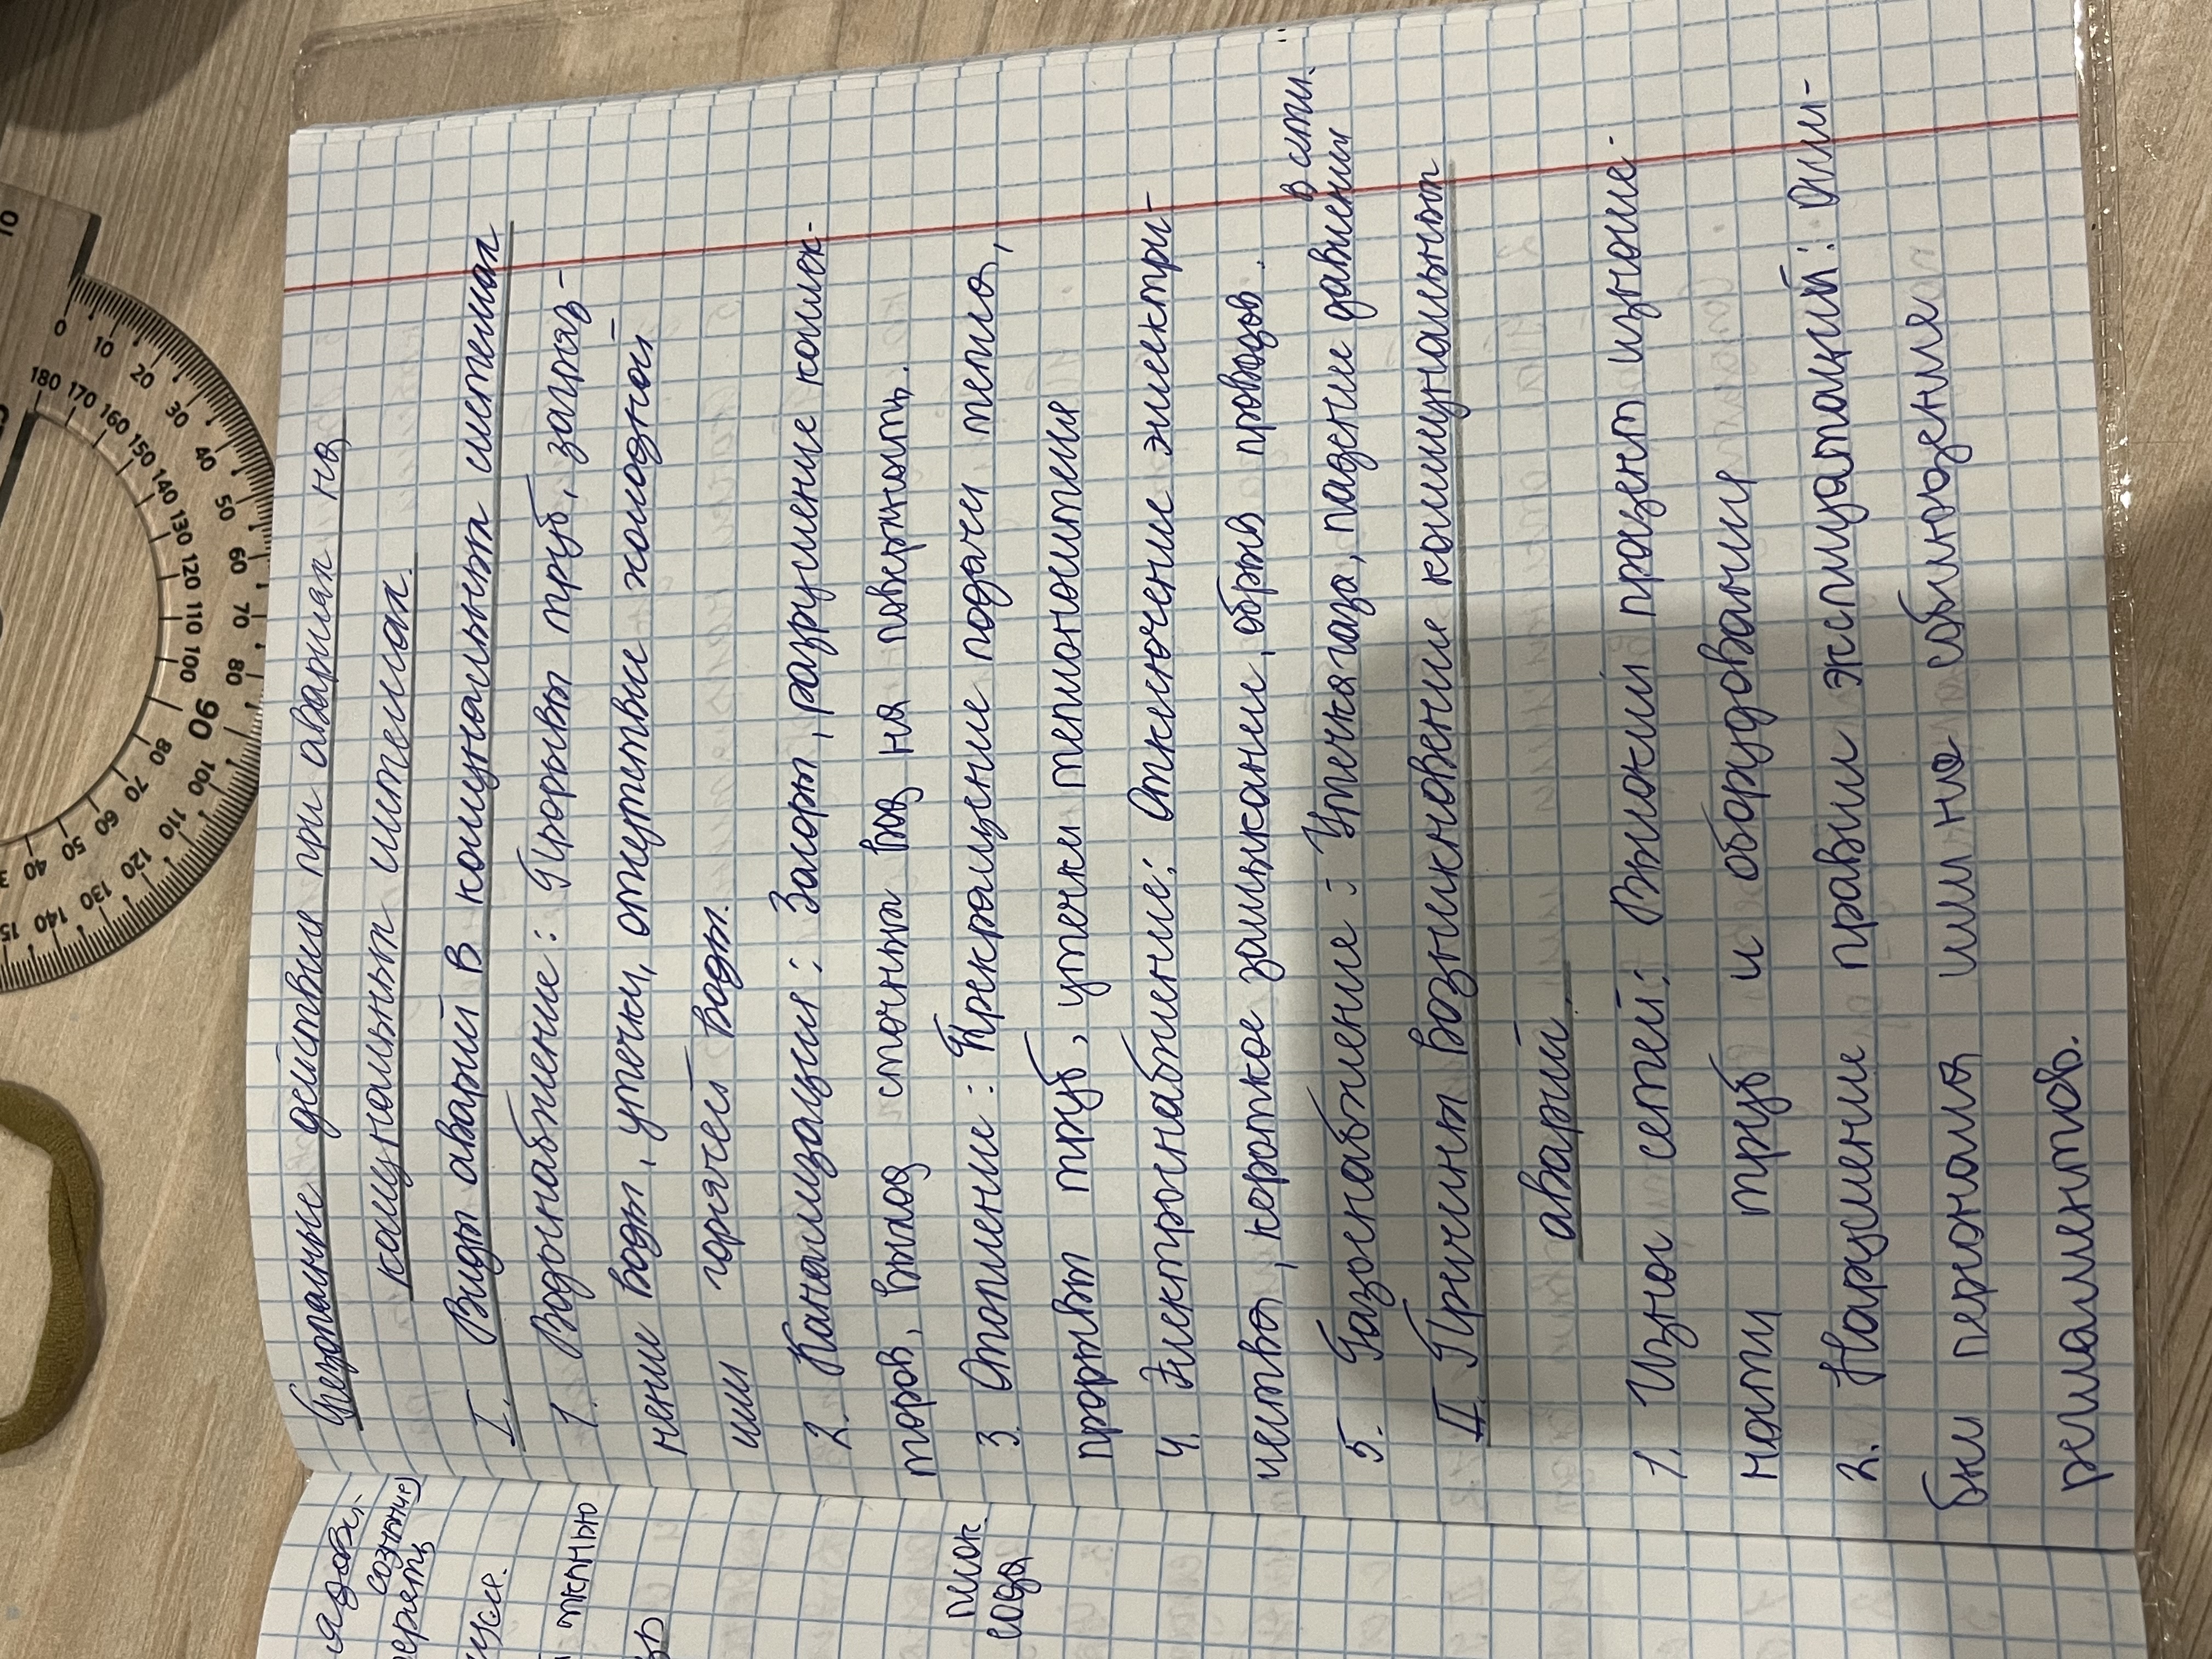 Безопасные действия при авариях на
комунальных системах.
I. Виды аварий в комунальных системах
1. Водоснабжение: Прорывы труб, загряз-
нение воды, утечки, отсутствие холодной
или горячей воды.
2. Канализация: Засоры, разрушение коллек-
торов, выход сточных вод на поверхность.
3. Отопление: Прекращение подачи тепла,
прорывы труб, утечки теплоносителя
4. Электроснабжение: Отключение электри-
чества, короткое замыкание, обрыв проводов.
5. Газоснабжение: Утечка газа, падение давления
в сети.
II. Причины возникновение коммунальных
аварий.
1. Износ сетей: Высокий процент изноше-
ности труб и оборудования
2. Нарушение правил эксплуатаций: Оши-
бки персонала или не соблюдение
регламентов.
сознание
песок
сода
180 170 160 150 140 130 120 110 100 90 80 70 60 50 40
0 10 20 30 40 50 60 70 80 90 100 110 120 130 140 15
10